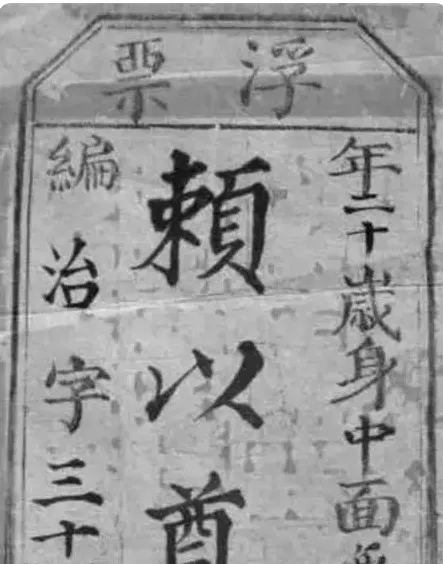 浮票
年二十歲身中面
賴以
編治字三十